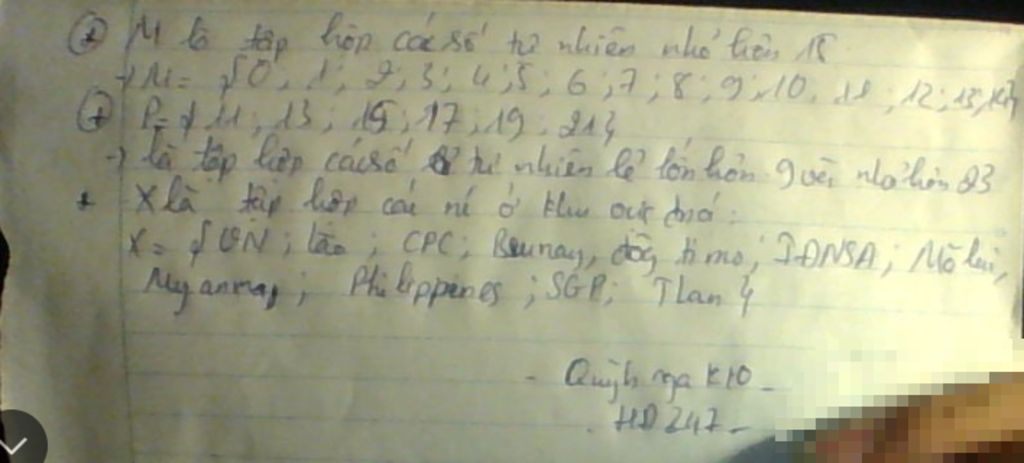 + M là tập hợp các số tự nhiên nhỏ hơn 15
→ M = {0, 1; 2; 3; 4; 5; 6; 7; 8; 9; 10, 11; 12; 13; 14}
+ P = {11; 13; 15; 17; 19; 21}
→ là tập hợp các số tự nhiên lẻ lớn hơn 9 và nhỏ hơn 23
+ X là tập hợp các ở khu vực :
X = {VN; Lào; CPC; Brunay, đông timo; INĐNSA; Mã lai,
Myanmar; Philippines; SGP; Tlan}
- Quỳnh nga K10 -
. HD 247 -